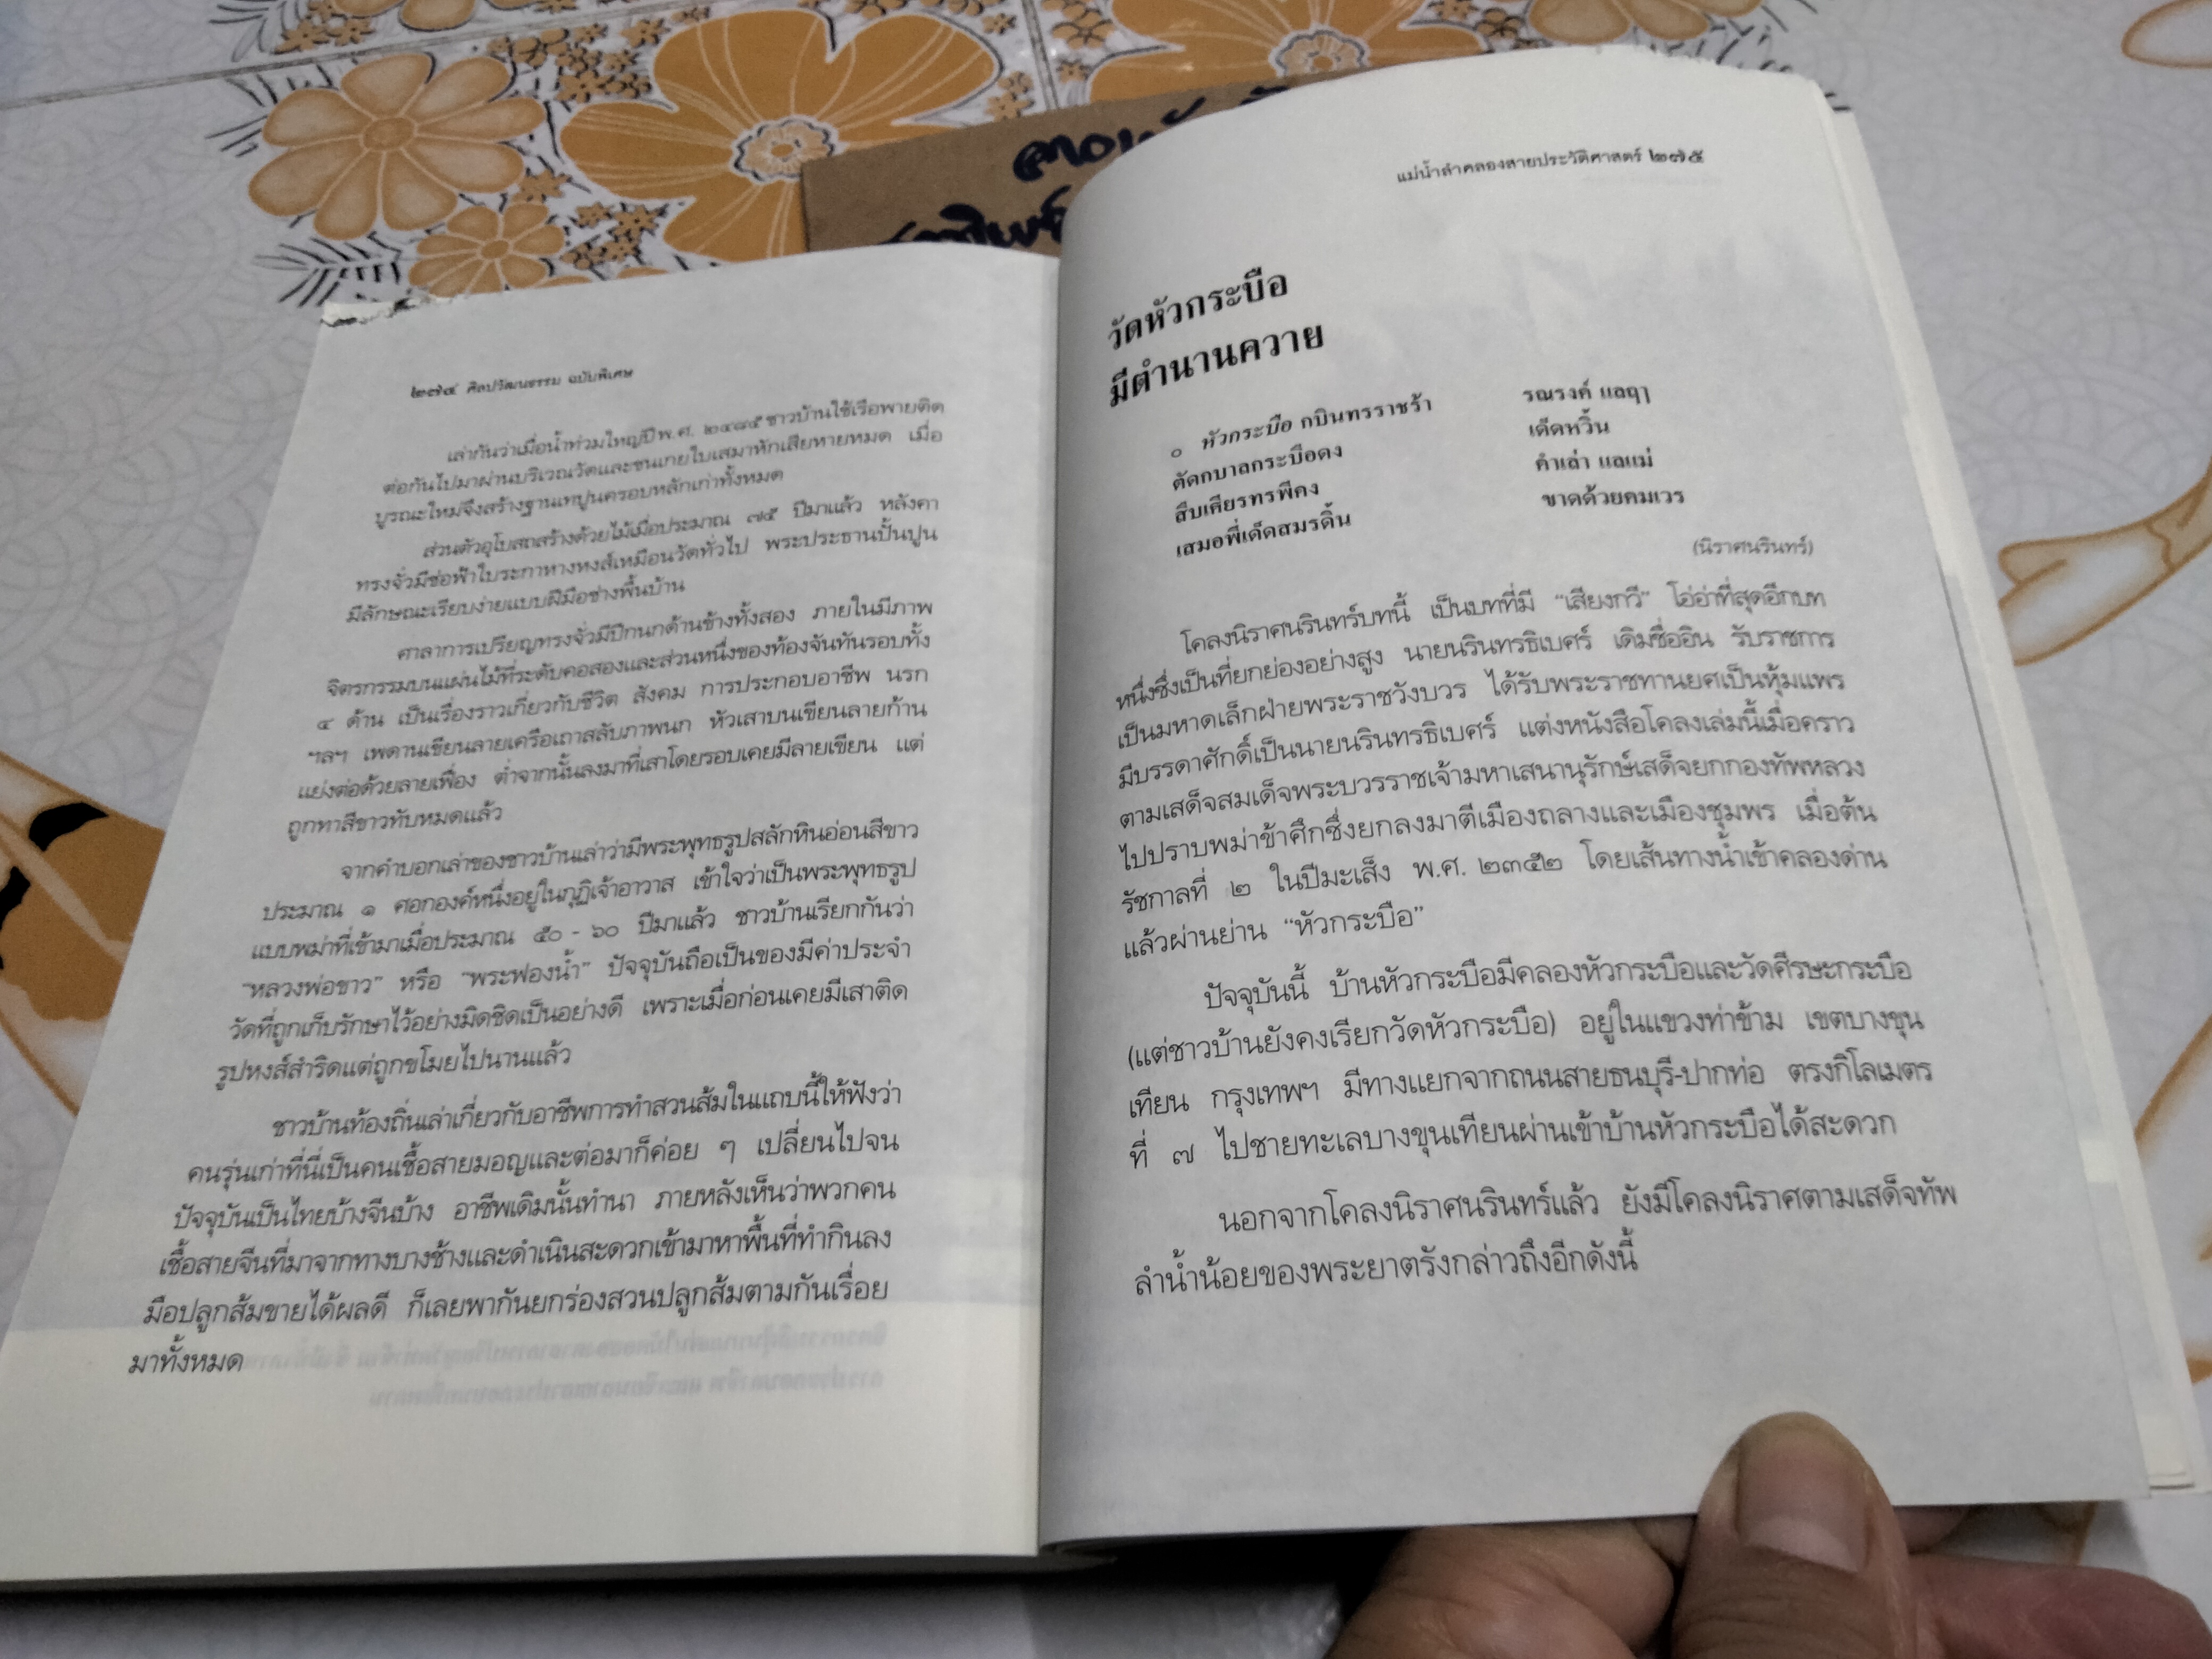 ๒๗๔ ศิลปวัฒนธรรม ฉบับพิเศษ
เล่ากันว่าเมื่อน้ำท่วมใหญ่ปี พ.ศ. ๒๔๘๕ ชาวบ้านใช้เรือพายติด
ต่อกันไปมาผ่านบริเวณวัดและชนเกยใบเสมาหักเสียหายหมด เมื่อ
บูรณะใหม่จึงสร้างฐานเทปูนครอบหลักเก่าทั้งหมด
ส่วนตัวอุโบสถสร้างด้วยไม้เมื่อประมาณ ๗๕ ปีมาแล้ว หลังคา
ทรงจั่วมีช่อฟ้าใบระกาหางหงส์เหมือนวัดทั่วไป พระประธานปั้นปูน
มีลักษณะเรียบง่ายแบบฝีมือช่างพื้นบ้าน
ศาลาการเปรียญทรงจั่วมีปีกนกด้านข้างทั้งสอง ภายในมีภาพ
จิตรกรรมบนแผ่นไม้ที่ระดับคอสองและส่วนหนึ่งของท้องจันทันรอบทั้ง
๔ ด้าน เป็นเรื่องราวเกี่ยวกับชีวิต สังคม การประกอบอาชีพ นรก
ฯลฯ เพดานเขียนลายเครือเถาสลับภาพนก หัวเสาบนเขียนลายก้าน
แย่งต่อด้วยลายเฟื่อง ต่ำจากนั้นลงมาที่เสาโดยรอบเคยมีลายเขียน แต่
ถูกทาสีขาวทับหมดแล้ว
จากคำบอกเล่าของชาวบ้านเล่าว่ามีพระพุทธรูปสลักหินอ่อนสีขาว
ประมาณ ๑ ศอกองค์หนึ่งอยู่ในกุฏิเจ้าอาวาส เข้าใจว่าเป็นพระพุทธรูป
แบบพม่าที่เข้ามาเมื่อประมาณ ๕๐ - ๖๐ ปีมาแล้ว ชาวบ้านเรียกกันว่า
“หลวงพ่อขาว” หรือ “พระฟองน้ำ” ปัจจุบันถือเป็นของมีค่าประจำ
วัดที่ถูกเก็บรักษาไว้อย่างมิดชิดเป็นอย่างดี เพราะเมื่อก่อนเคยมีเสาติด
รูปหงส์สำริดแต่ถูกขโมยไปนานแล้ว
ชาวบ้านท้องถิ่นเล่าเกี่ยวกับอาชีพการทำสวนส้มในแถบนี้ให้ฟังว่า
คนรุ่นเก่าที่นี่เป็นคนเชื้อสายมอญและต่อมาก็ค่อย ๆ เปลี่ยนไปจน
ปัจจุบันเป็นไทยบ้างจีนบ้าง อาชีพเดิมนั้นทำนา ภายหลังเห็นว่าพวกคน
เชื้อสายจีนที่มาจากทางบางช้างและดำเนินสะดวกเข้ามาหาพื้นที่ทำกินลง
มือปลูกส้มขายได้ผลดี ก็เลยพากันยกร่องสวนปลูกส้มตามกันเรื่อย
มาทั้งหมด
แม่น้ำลำคลองสายประวัติศาสตร์ ๒๗๕
วัดหัวกระบือ
มีตำนานควาย
๐ หัวกระบือ กบินทรราชร้า รณรงค์ แลฤๅ
ตัดกบาลกระบือดง เด็ดหวิ้น
สืบเศียรทรพีคง คำเล่า แลแม่
เสมอพี่เด็ดสมรดิ้น ขาดด้วยคมเวร
(นิราศนรินทร์)
โคลงนิราศนรินทร์บทนี้ เป็นบทที่มี “เสียงกวี” โอ่อ่าที่สุดอีกบท
หนึ่งซึ่งเป็นที่ยกย่องอย่างสูง นายนรินทรธิเบศร์ เดิมชื่ออิน รับราชการ
เป็นมหาดเล็กฝ่ายพระราชวังบวร ได้รับพระราชทานยศเป็นหุ้มแพร
มีบรรดาศักดิ์เป็นนายนรินทรธิเบศร์ แต่งหนังสือโคลงเล่มนี้เมื่อคราว
ตามเสด็จสมเด็จพระบวรราชเจ้ามหาเสนานุรักษ์เสด็จยกกองทัพหลวง
ไปปราบพม่าข้าศึกซึ่งยกลงมาตีเมืองถลางและเมืองชุมพร เมื่อต้น
รัชกาลที่ ๒ ในปีมะเส็ง พ.ศ. ๒๓๕๒ โดยเส้นทางน้ำเข้าคลองด่าน
แล้วผ่านย่าน “หัวกระบือ”
ปัจจุบันนี้ บ้านหัวกระบือมีคลองหัวกระบือและวัดศีรษะกระบือ
(แต่ชาวบ้านยังคงเรียกวัดหัวกระบือ) อยู่ในแขวงท่าข้าม เขตบางขุน
เทียน กรุงเทพฯ มีทางแยกจากถนนสายธนบุรี-ปากท่อ ตรงกิโลเมตร
ที่ ๗ ไปชายทะเลบางขุนเทียนผ่านเข้าบ้านหัวกระบือได้สะดวก
นอกจากโคลงนิราศนรินทร์แล้ว ยังมีโคลงนิราศตามเสด็จทัพ
ลำน้ำน้อยของพระยาตรังกล่าวถึงอีกดังนี้